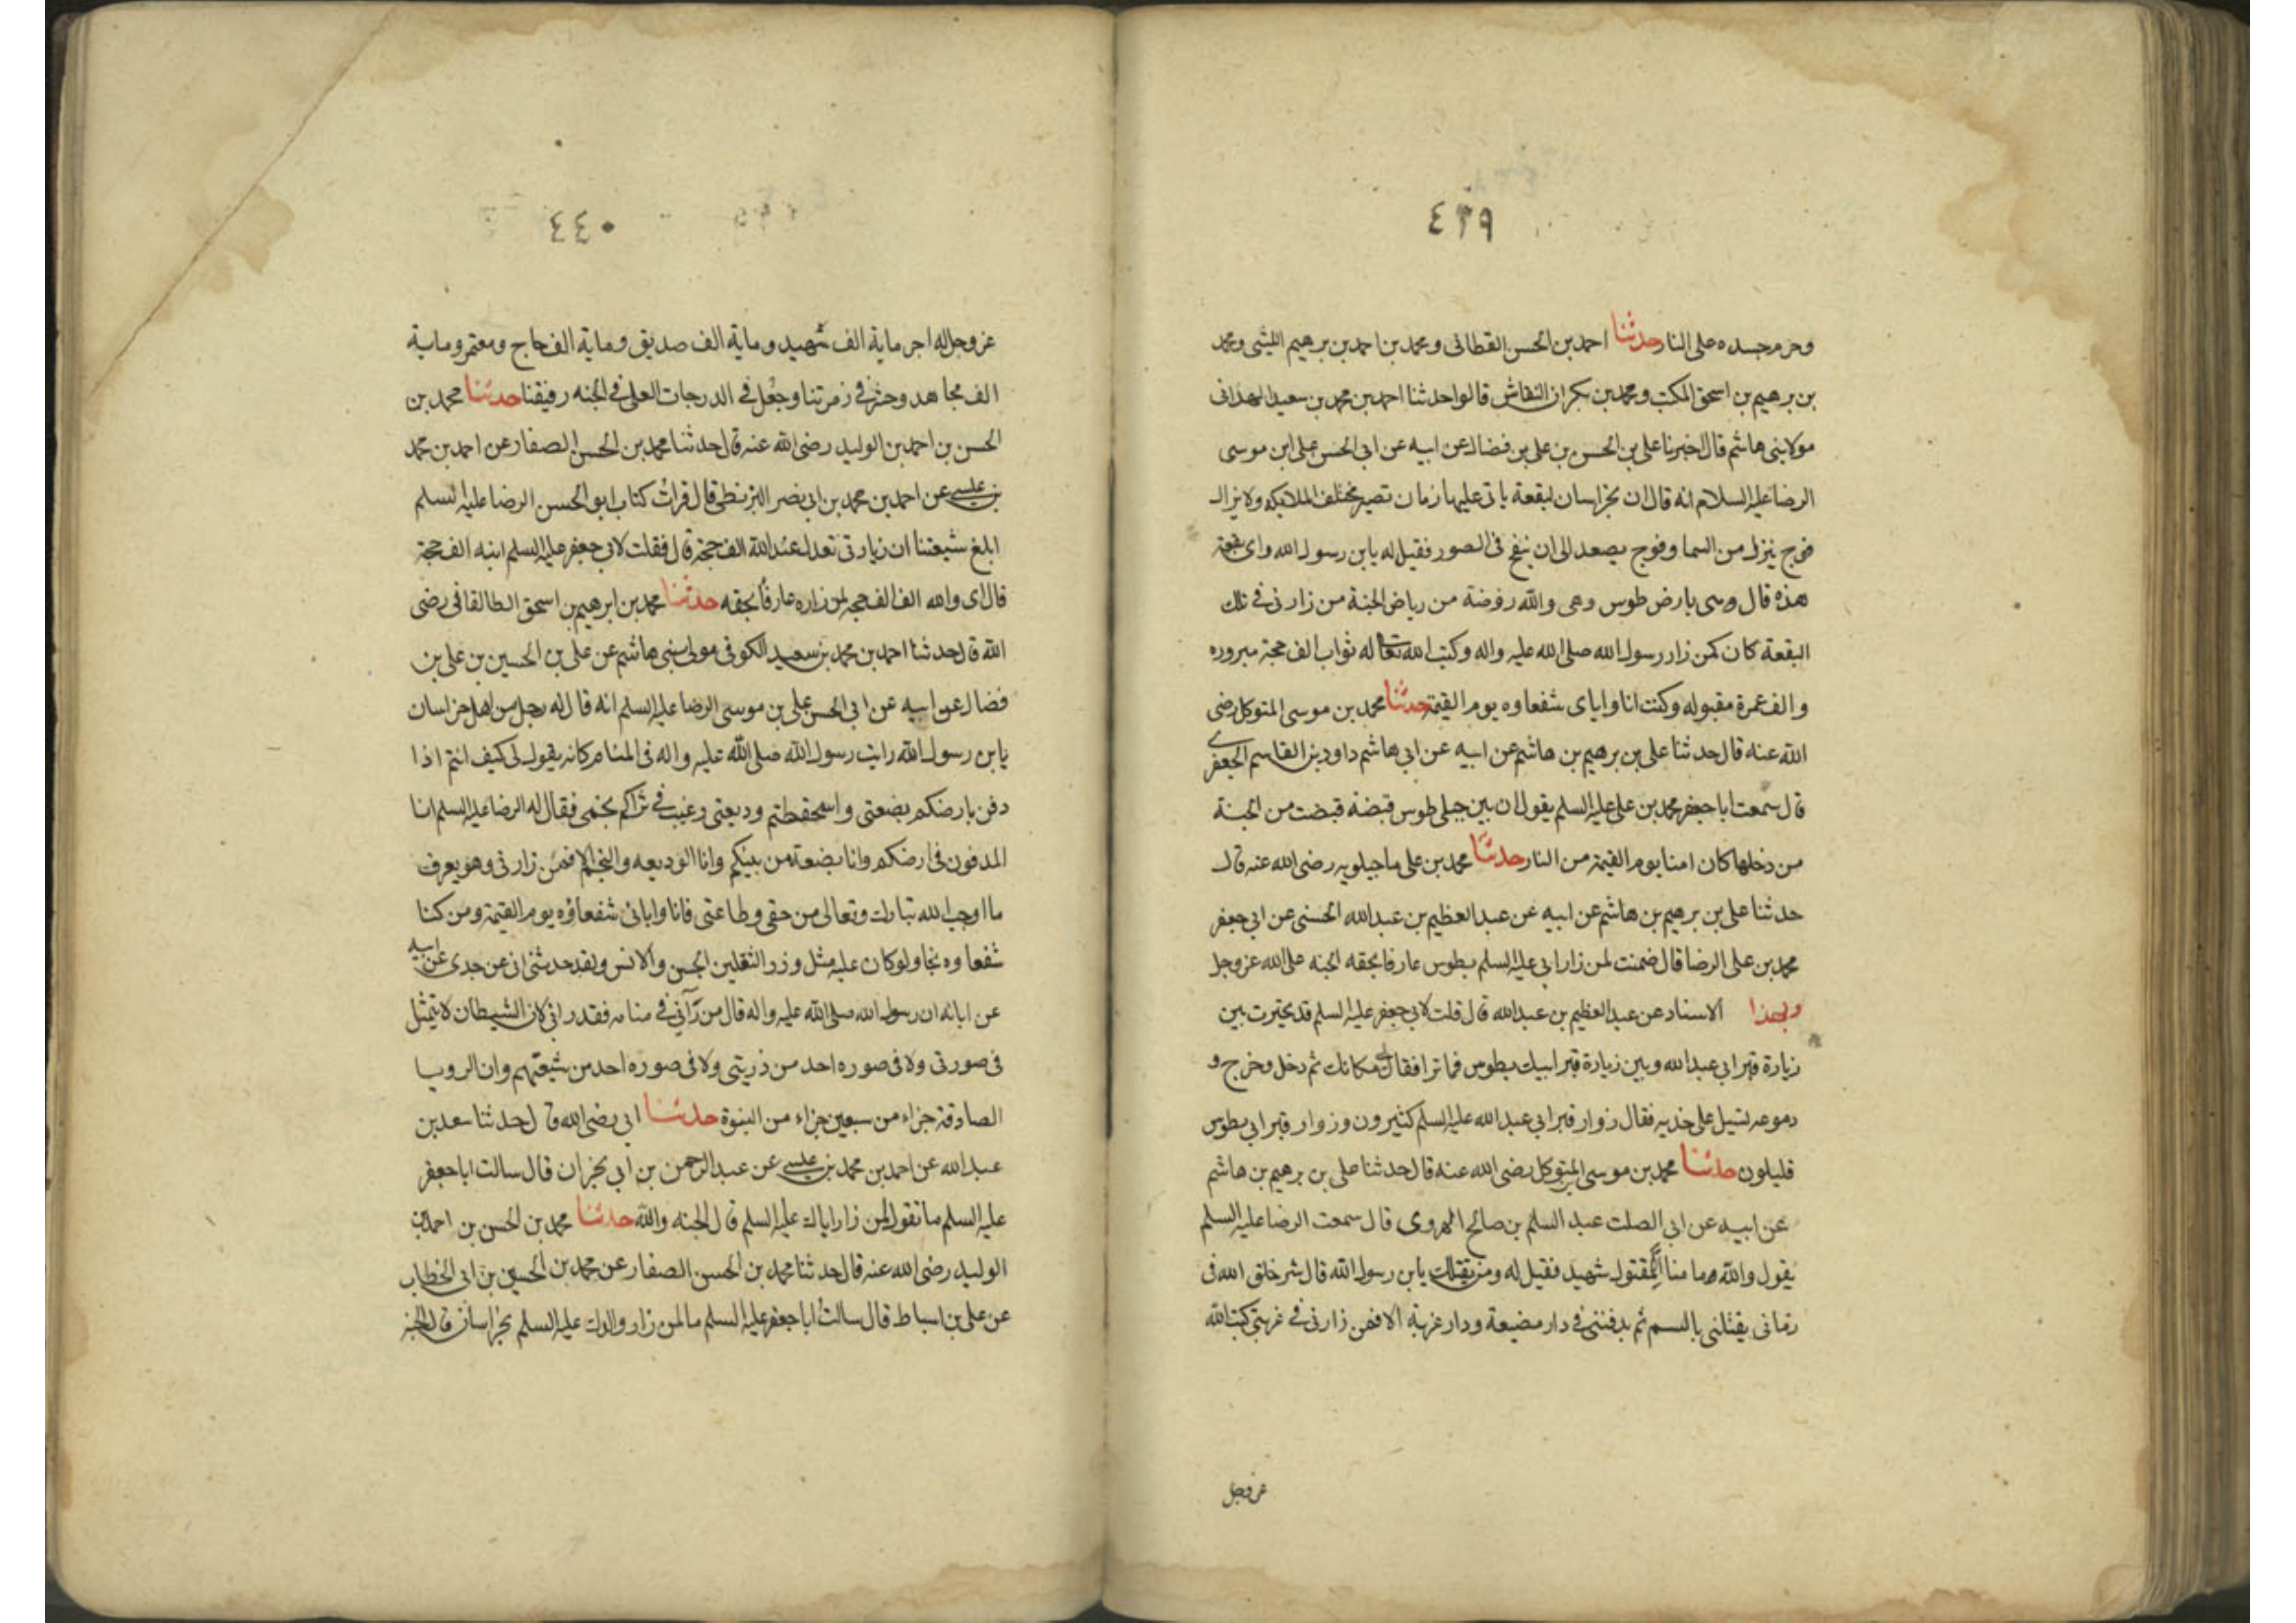 ٤٣٩
وحرم جسده على النار حدثنا احمد بن الحسن القطانى ومحمد بن احمد بن برهيم الليثى ومحمد
بن برهيم بن اسحق المكتب ومحمد بن بكران النقاش قالوا حدثنا احمد بن محمد بن سعيد الهمدانى
مولا بنى هاشم قال اخبرنا على بن الحسن بن على بن فضال عن ابيه عن ابى الحسن على ابن موسى
الرضا عليه السلام انه قال ان بخراسان لبقعة ياتى عليها زمان تصير مختلف الملايكه ولا يزال
فوج ينزل من السما وفوج يصعد الى ان ينفخ فى الصور فقيل له يابن رسول الله واى بقعة
هذه قال وهى بارض طوس وهى والله روضة من رياض الجنة من زارنى فى تلك
البقعة كان كمن زار رسول الله صلى الله عليه واله وكتب الله تعالى له ثواب الف حجة مبروره
والف عمرة مقبوله وكنت انا واباى شفعاوه يوم القيمة حدثنا محمد بن موسى المتوكل رضى
الله عنه قال حدثنا على بن برهيم بن هاشم عن ابيه عن ابى هاشم داود بن القاسم الجعفرى
قال سمعت ابا جعفر محمد بن على عليه السلم يقول ان بين جبلى طوس قبضة قبضت من الجنة
من دخلها كان امنا يوم القيمة من النار حدثنا محمد بن على ماجيلويه رضى الله عنه قال
حدثنا على بن برهيم بن هاشم عن ابيه عن عبد العظيم بن عبد الله الحسنى عن ابى جعفر
محمد بن على الرضا قال ضمنت لمن زار ابى عليه السلم بطوس عارفا بحقه الجنه على الله عز وجل
وبهذا الاسناد عن عبد العظيم بن عبد الله قال قلت لابى جعفر عليه السلم قد تحيرت بين
زيارة قبر ابى عبد الله وبين زيارة قبر ابيك بطوس فما ترا فقال لى مكانك ثم دخل وخرج و
دموعه تسيل على خديه فقال زوار قبر ابى عبد الله عليه السلم كثيرون وزوار قبر ابى بطوس
قليلون حدثنا محمد بن موسى المتوكل رضى الله عنه قال حدثنا على بن برهيم بن هاشم
عن ابيه عن ابى الصلت عبد السلم بن صالح الهروى قال سمعت الرضا عليه السلم
يقول والله ما منا الا مقتول شهيد فقيل له ومن يقتلك يابن رسول الله قال شر خلق الله فى
زمانى يقتلنى بالسم ثم يدفننى فى دار مضيعة ودار غربة الا فمن زارنى فى غربتى كتب الله
عز وجل
٤٤٠
عز وجل له اجر ماية الف شهيد وماية الف صديق وماية الف حاج ومعتمر وماية
الف مجاهد وحشر فى زمرتنا وجعل فى الدرجات العلى فى الجنه رفيقنا حدثنا محمد بن
الحسن بن احمد بن الوليد رضى الله عنه قال حدثنا محمد بن الحسن الصفار عن احمد بن محمد
بن عيسى عن احمد بن محمد بن ابى نصر البزنطى قال قرات كتاب ابو الحسن الرضا عليه السلم
ابلغ شيعتنا ان زيارتى تعدل عند الله الف حجة قال فقلت لابى جعفر عليه السلم ابنه الف حجة
قال اى والله الف الف حجه لمن زاره عارفا بحقه حدثنا محمد بن ابرهيم بن اسحق الطالقانى رضى
الله قال حدثنا احمد بن محمد بن سعيد الكوفى مولى بنى هاشم عن على بن الحسين بن على بن
فضال عن ابيه عن ابى الحسن على بن موسى الرضا عليه السلم انه قال له رجل من اهل خراسان
يابن رسول الله رايت رسول الله صلى الله عليه واله فى المنام كانه يقول لى كيف انتم اذا
دفن بارضكم بضعتى واستحفظتم وديعتى وغيب فى ثراكم نجمى فقال له الرضا عليه السلم انا
المدفون فى ارضكم وانا بضعة من نبيكم وانا الوديعه والنجم الا فمن زارنى وهو يعرف
ما اوجب الله تبارك وتعالى من حقى وطاعتى فانا وابائى شفعاؤه يوم القيمة ومن كنا
شفعاوه نجا ولو كان عليه مثل وزر الثقلين الجن والانس ولقد حدثنى ابى عن جدى عن ابيه
عن ابائه ان رسول الله صلى الله عليه واله قال من رآنى فى منامه فقد رانى لان الشيطان لا يتمثل
فى صورتى ولا فى صوره احد من ذريتى ولا فى صوره احد من شيعتهم وان الرويا
الصادقة جزاء من سبعين جزاء من النبوة حدثنا ابى رضى الله قال حدثنا سعد بن
عبد الله عن احمد بن محمد بن عيسى عن عبد الرحمن بن ابى نجران قال سالت ابا جعفر
عليه السلم ما تقول لمن زار اباك عليه السلم قال الجنه والله حدثنا محمد بن الحسن بن احمد بن
الوليد رضى الله عنه قال حدثنا محمد بن الحسن الصفار عن محمد بن الحسين بن ابى الخطاب
عن على بن اسباط قال سالت ابا جعفر عليه السلم ما لمن زار والدك عليه السلم بخراسان قال الجنة